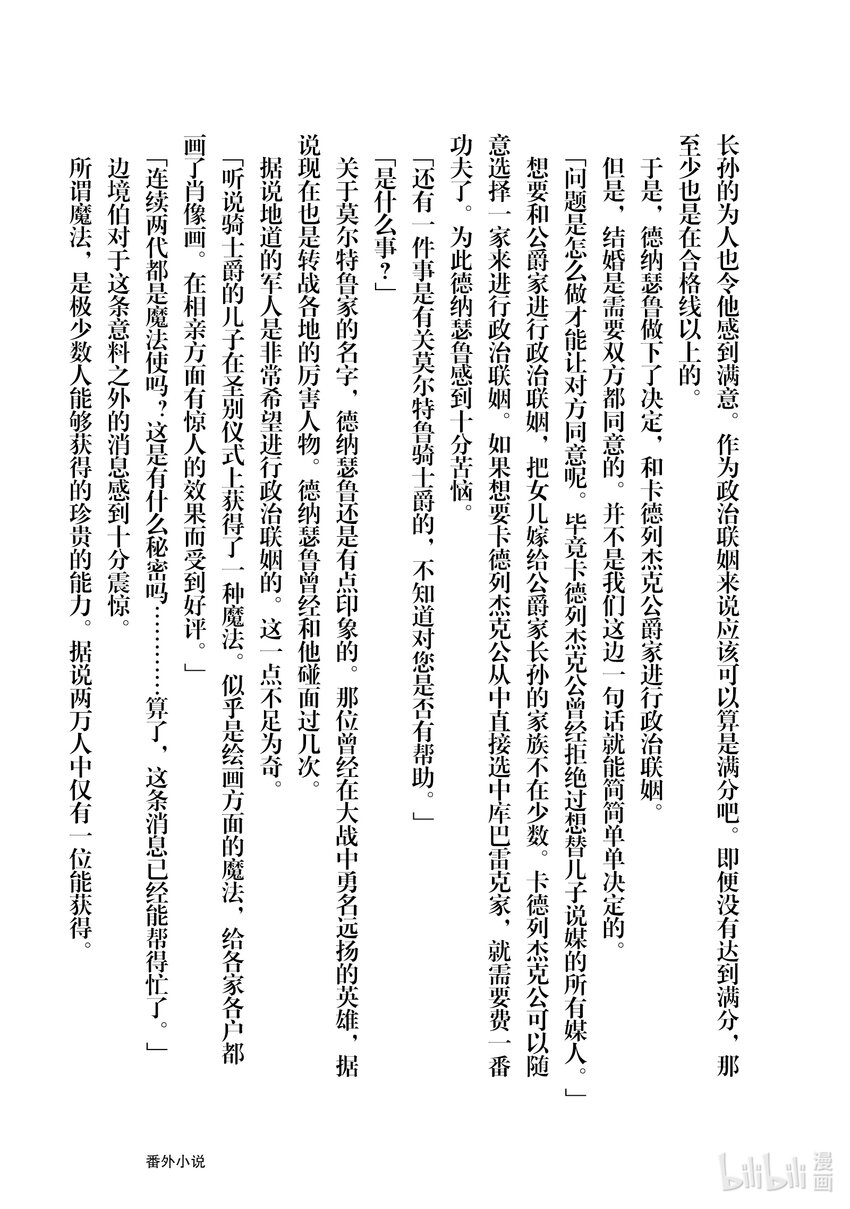 长孙的为人也令他感到满意。作为政治联姻来说应该可以算是满分吧。即便没有达到满分，那
至少也是在合格线以上的。
于是，德纳瑟鲁做下了决定，和卡德列杰克公爵家进行政治联姻。
但是，结婚是需要双方都同意的。并不是我们这边一句话就能简简单单决定的。
「问题是怎么做才能让对方同意呢。毕竟卡德列杰克公曾经拒绝过想替儿子说媒的所有媒人。」
想要和公爵家进行政治联姻，把女儿嫁给公爵家长孙的家族不在少数。卡德列杰克公可以随
意选择一家来进行政治联姻。如果想要卡德列杰克公从中直接选中库巴雷克家，就需要费一番
功夫了。为此德纳瑟鲁感到十分苦恼。
「还有一件事是有关莫尔特鲁骑士爵的，不知道对您是否有帮助。」
「是什么事？」
关于莫尔特鲁家的名字，德纳瑟鲁还是有点印象的。那位曾经在大战中勇名远扬的英雄，据
说现在也是转战各地的厉害人物。德纳瑟鲁曾经和他碰面过几次。
据说地道的军人是非常希望进行政治联姻的。这一点不足为奇。
「听说骑士爵的儿子在圣别仪式上获得了一种魔法。似乎是绘画方面的魔法，给各家各户都
画了肖像画。在相亲方面有惊人的效果而受到好评。」
「连续两代都是魔法使吗？这是有什么秘密吗…………算了，这条消息已经能帮得忙了。」
边境伯对于这条意料之外的消息感到十分震惊。
所谓魔法，是极少数人能够获得的珍贵的能力。据说两万人中仅有一位能获得。
番外小说
bilibili漫画